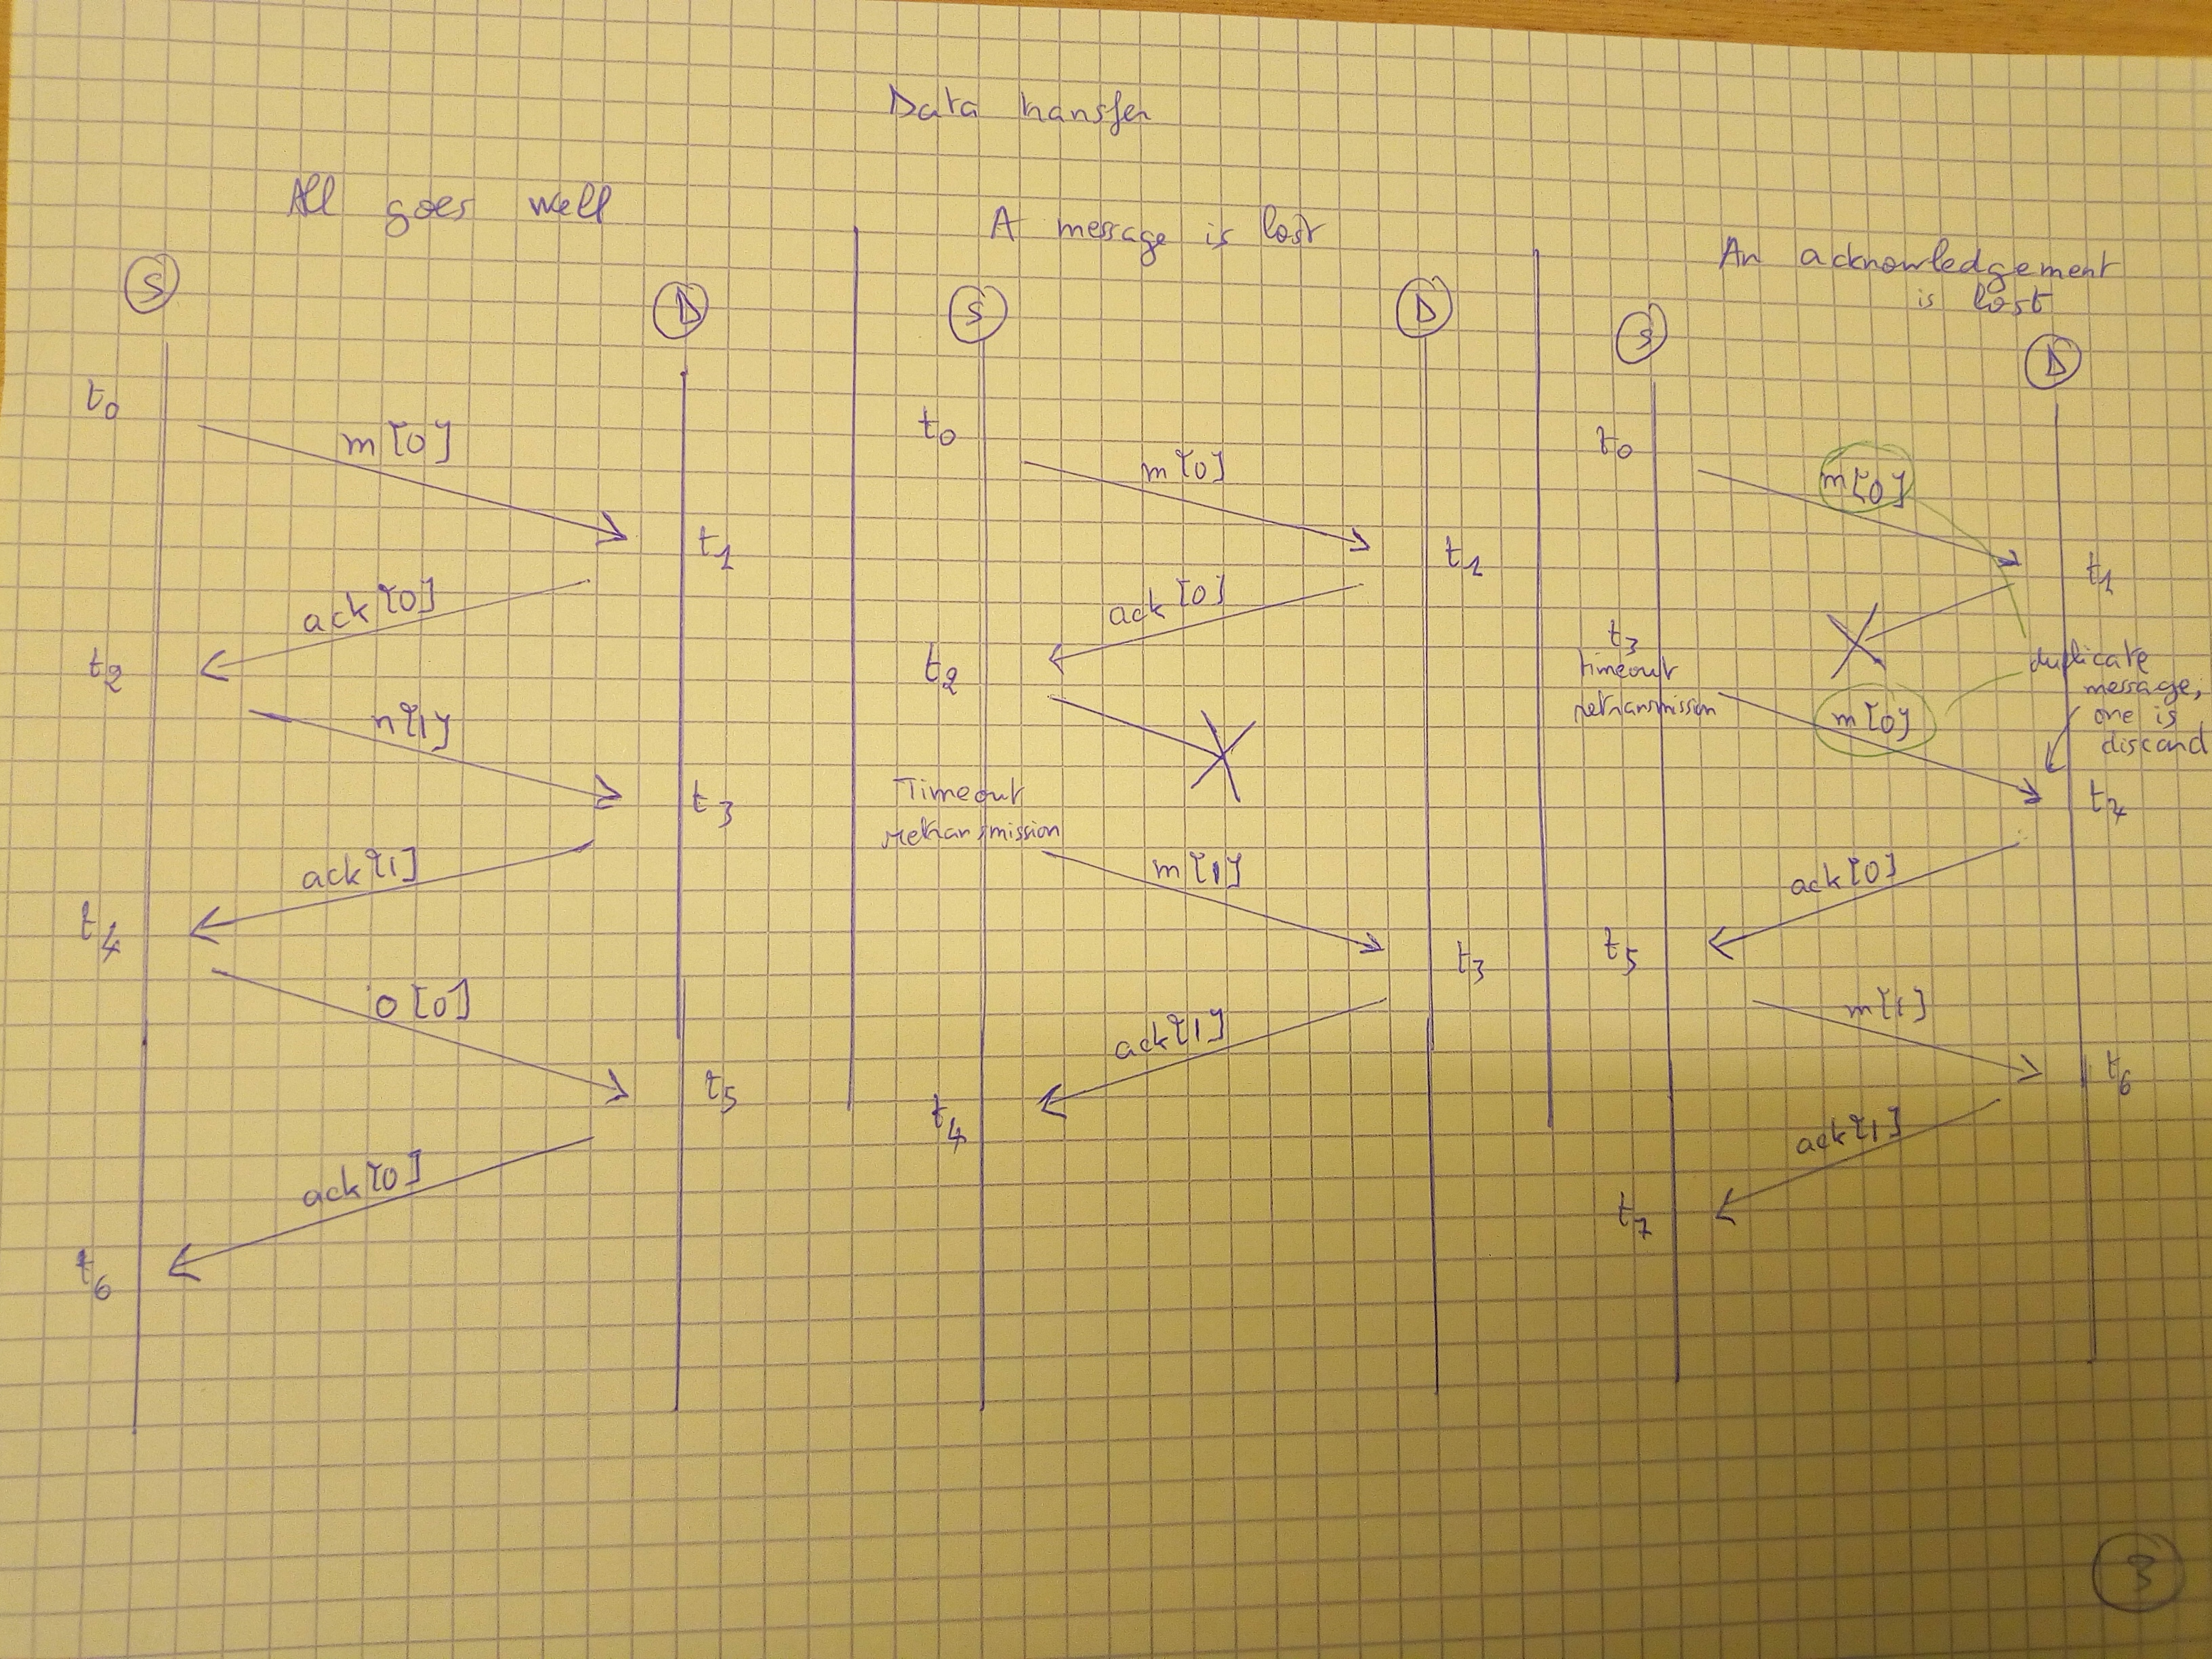 Data transfer
All goes well
S
D
t0
m[0]
t1
ack[0]
t2
n[1]
t3
ack[1]
t4
o[0]
t5
ack[0]
t6
A message is lost
S
D
t0
m[0]
t1
ack[0]
t2
Timeout
retransmission
m[1]
t3
ack[1]
t4
An acknowledgement
is lost
S
D
t0
m[0]
t1
t3
timeout
retransmission
m[0]
duplicate
message,
one is
discard
ack[0]
t5
m[1]
t6
ack[1]
t7
3